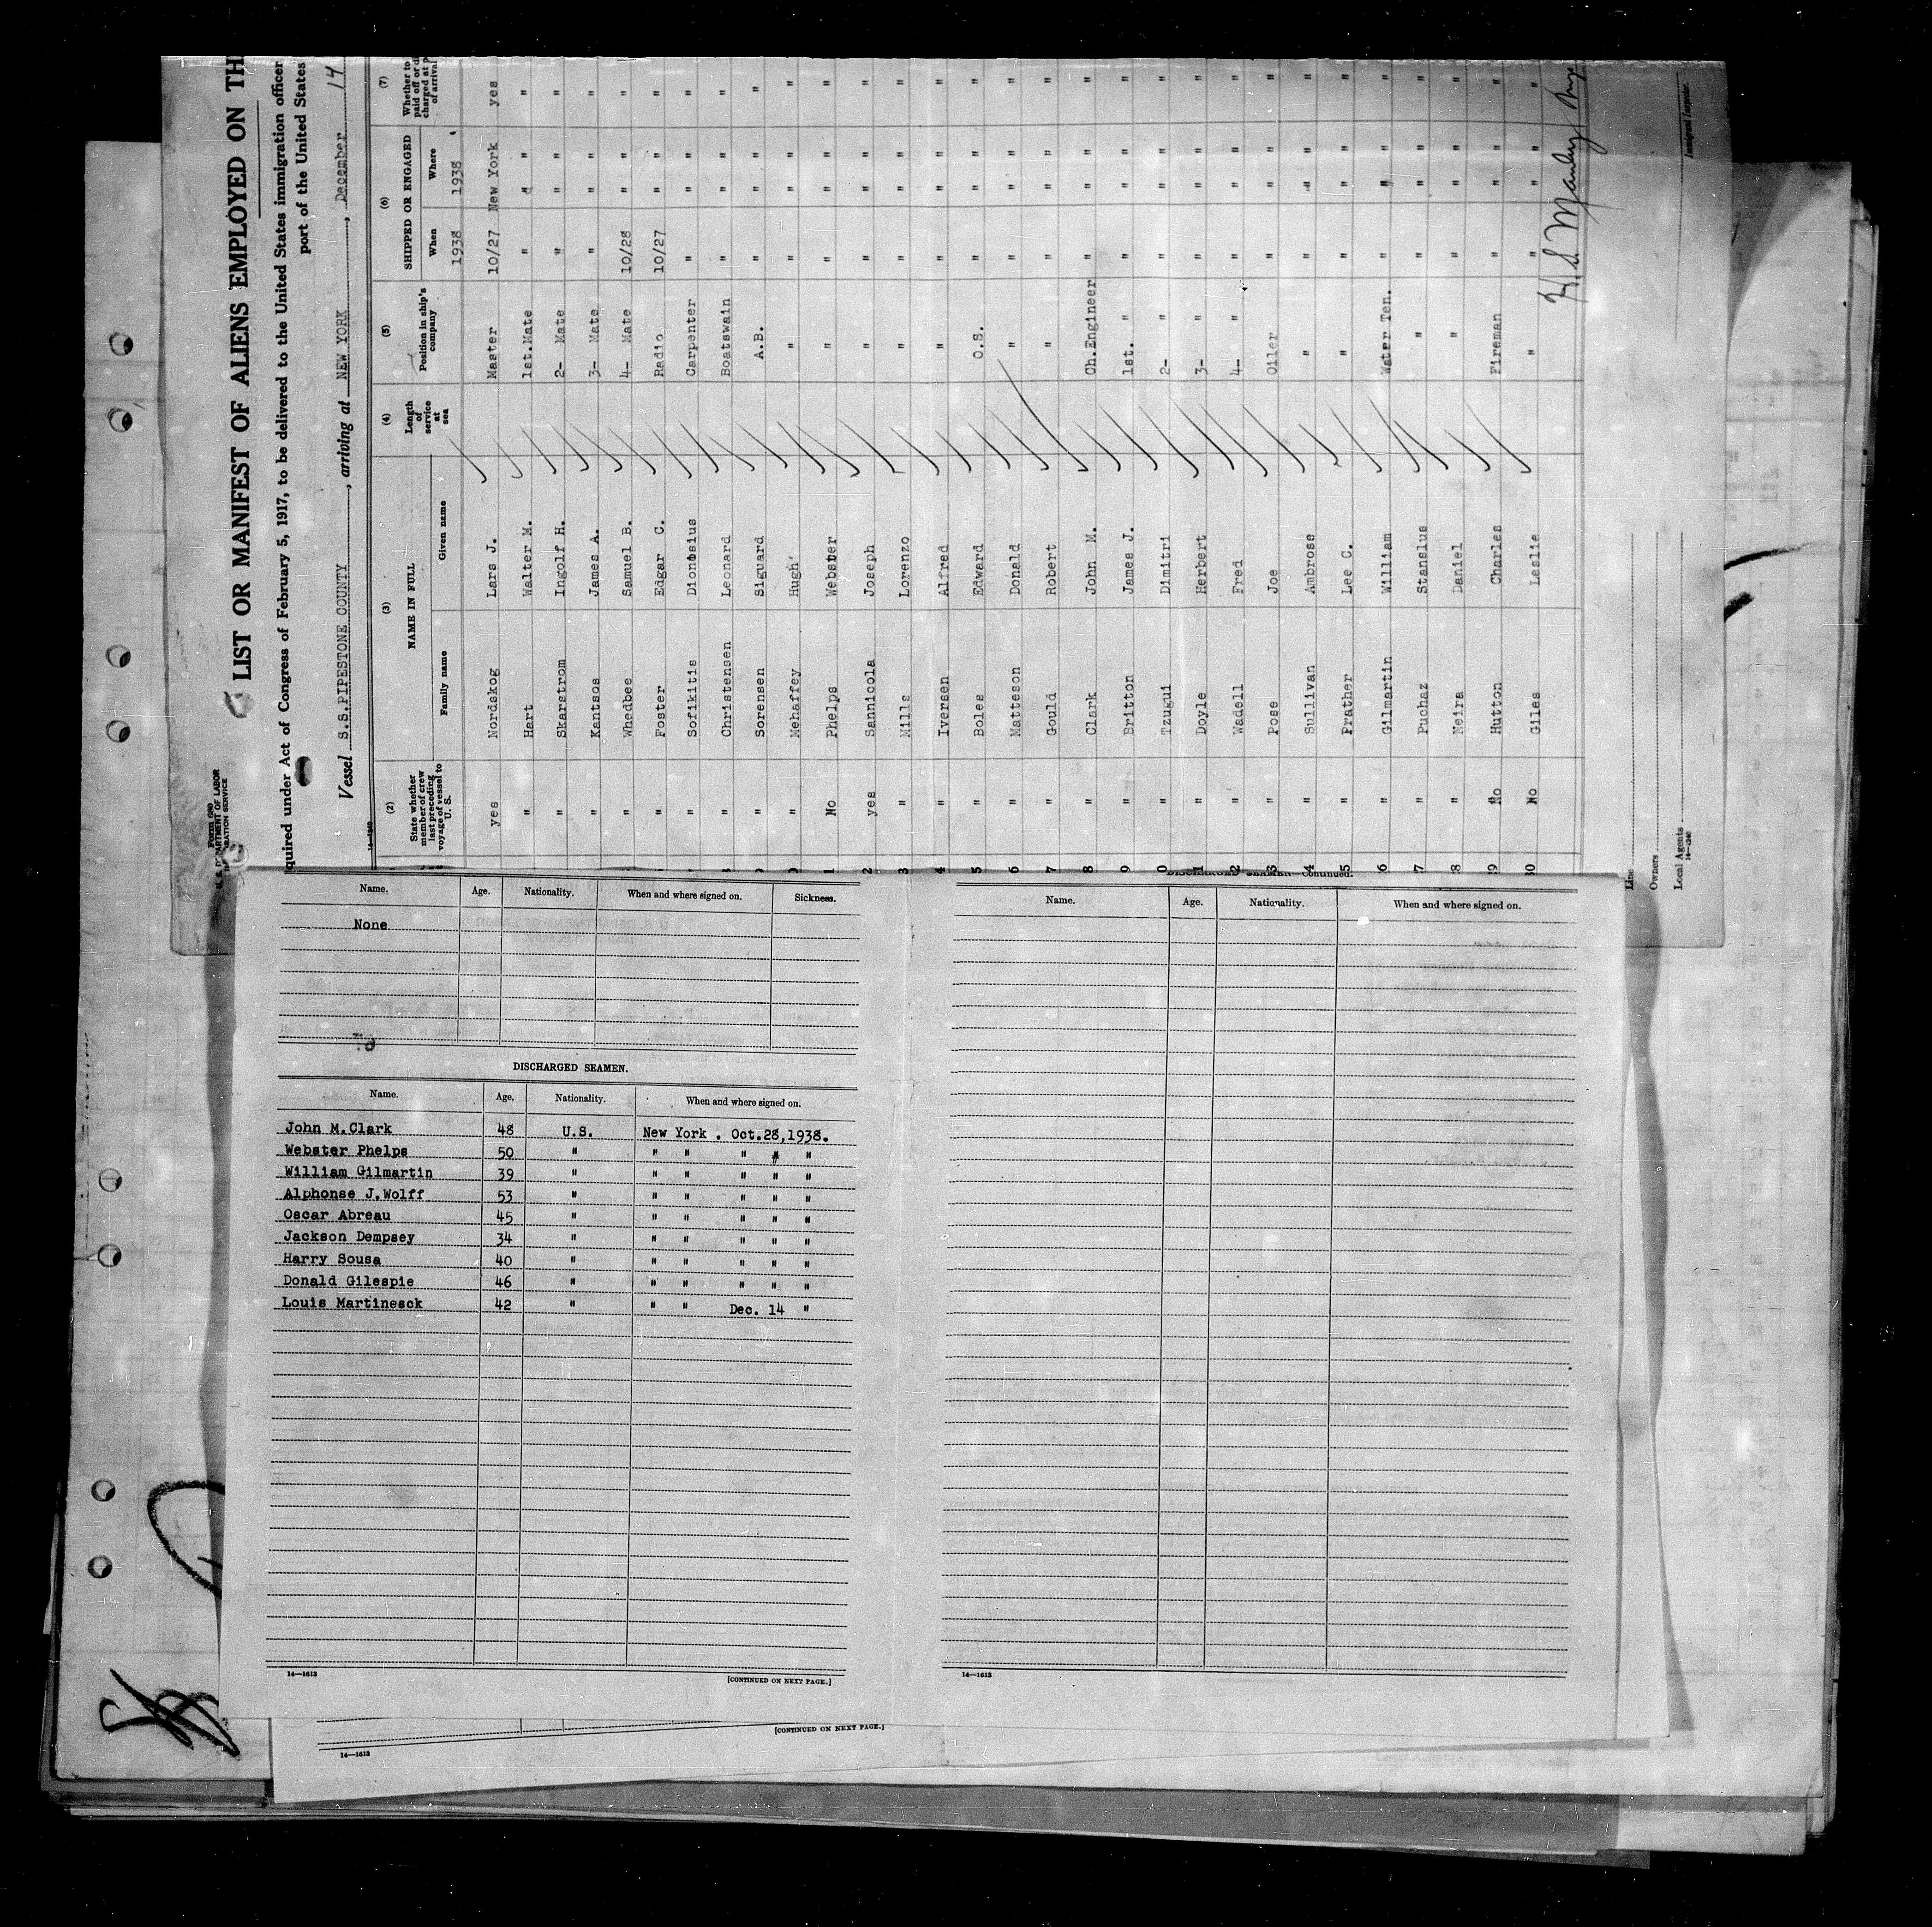 Form 680
U. S. DEPARTMENT OF LABOR
LIST OR MANIFEST OF ALIENS EMPLOYED ON TH
quired under Act of Congress of February 5, 1917, to be delivered to the United States immigration officer
port of the United States
Vessel S.S.PIPESTONE COUNTY, arriving at NEW YORK, December 14
1938
(2) (3) (4) (5) (6) (7)
State whether member of crew last preceding voyage of vessel to U. S. NAME IN FULL Length of service at sea Position in ship's company SHIPPED OR ENGAGED Whether to
paid off or d
charged at p
of arrival
Family name Given name When Where
1938
yes Nordskog Lars J. Master 10/27 New York yes
" Hart Walter M. 1st.Mate " " " "
" Skarstrom Ingolf H. 2- Mate " " " "
" Kantsos James A. 3- Mate " " " "
" Whedbee Samuel B. 4- Mate 10/28 " " "
" Foster Edgar C. Radio 10/27 " " "
" Sofikitis Dionosius Carpenter " " " "
" Christensen Leonard Boatswain " " " "
" Sorensen Siguard A.B. " " " "
" Mehaffey Hugh " " " " "
1 No Phelps Webster " " " " "
2 yes Sannicola Joseph " " " " "
3 " Mills Lorenzo " " " " "
4 " Iversen Alfred " " " " "
5 " Boles Edward O.S. " " " "
6 " Matteson Donald " " " " "
7 " Gould Robert " " " " "
8 " Clark John M. Ch.Engineer " " " "
9 " Britton James J. 1st. " " " " "
0 " Tzugui Dimitri 2- " " " " "
1 " Doyle Herbert 3- " " " " "
2 " Wadell Fred 4- " " " " "
3 " Pose Joe Oiler " " " "
4 " Sullivan Ambrose " " " " "
5 " Prather Lee C. " " " " "
6 " Gilmartin William Water Ten. " " " "
7 " Puchaz Stanslus " " " " "
8 " Neira Daniel " " " " "
29 No Hutton Charles Fireman " " " "
30 No Giles Leslie " " " " "
Line
Owners
Local Agents
Immigrant Inspector.
Name. Age. Nationality. When and where signed on. Sickness.
None
DISCHARGED SEAMEN.
Name. Age. Nationality. When and where signed on.
John M.Clark 48 U.S. New York . Oct.28,1938.
Webster Phelps 50 " " " " " "
William Gilmartin 39 " " " " " "
Alphonse J.Wolff 53 " " " " " "
Oscar Abreau 45 " " " " " "
Jackson Dempsey 34 " " " " " "
Harry Sousa 40 " " " " " "
Donald Gilespie 46 " " " " " "
Louis Martinesck 42 " " " Dec. 14 "
14—1613
[CONTINUED ON NEXT PAGE.]
DISCHARGED SEAMEN—Continued.
Name. Age. Nationality. When and where signed on.
14—1613
[CONTINUED ON NEXT PAGE.]
14—1613